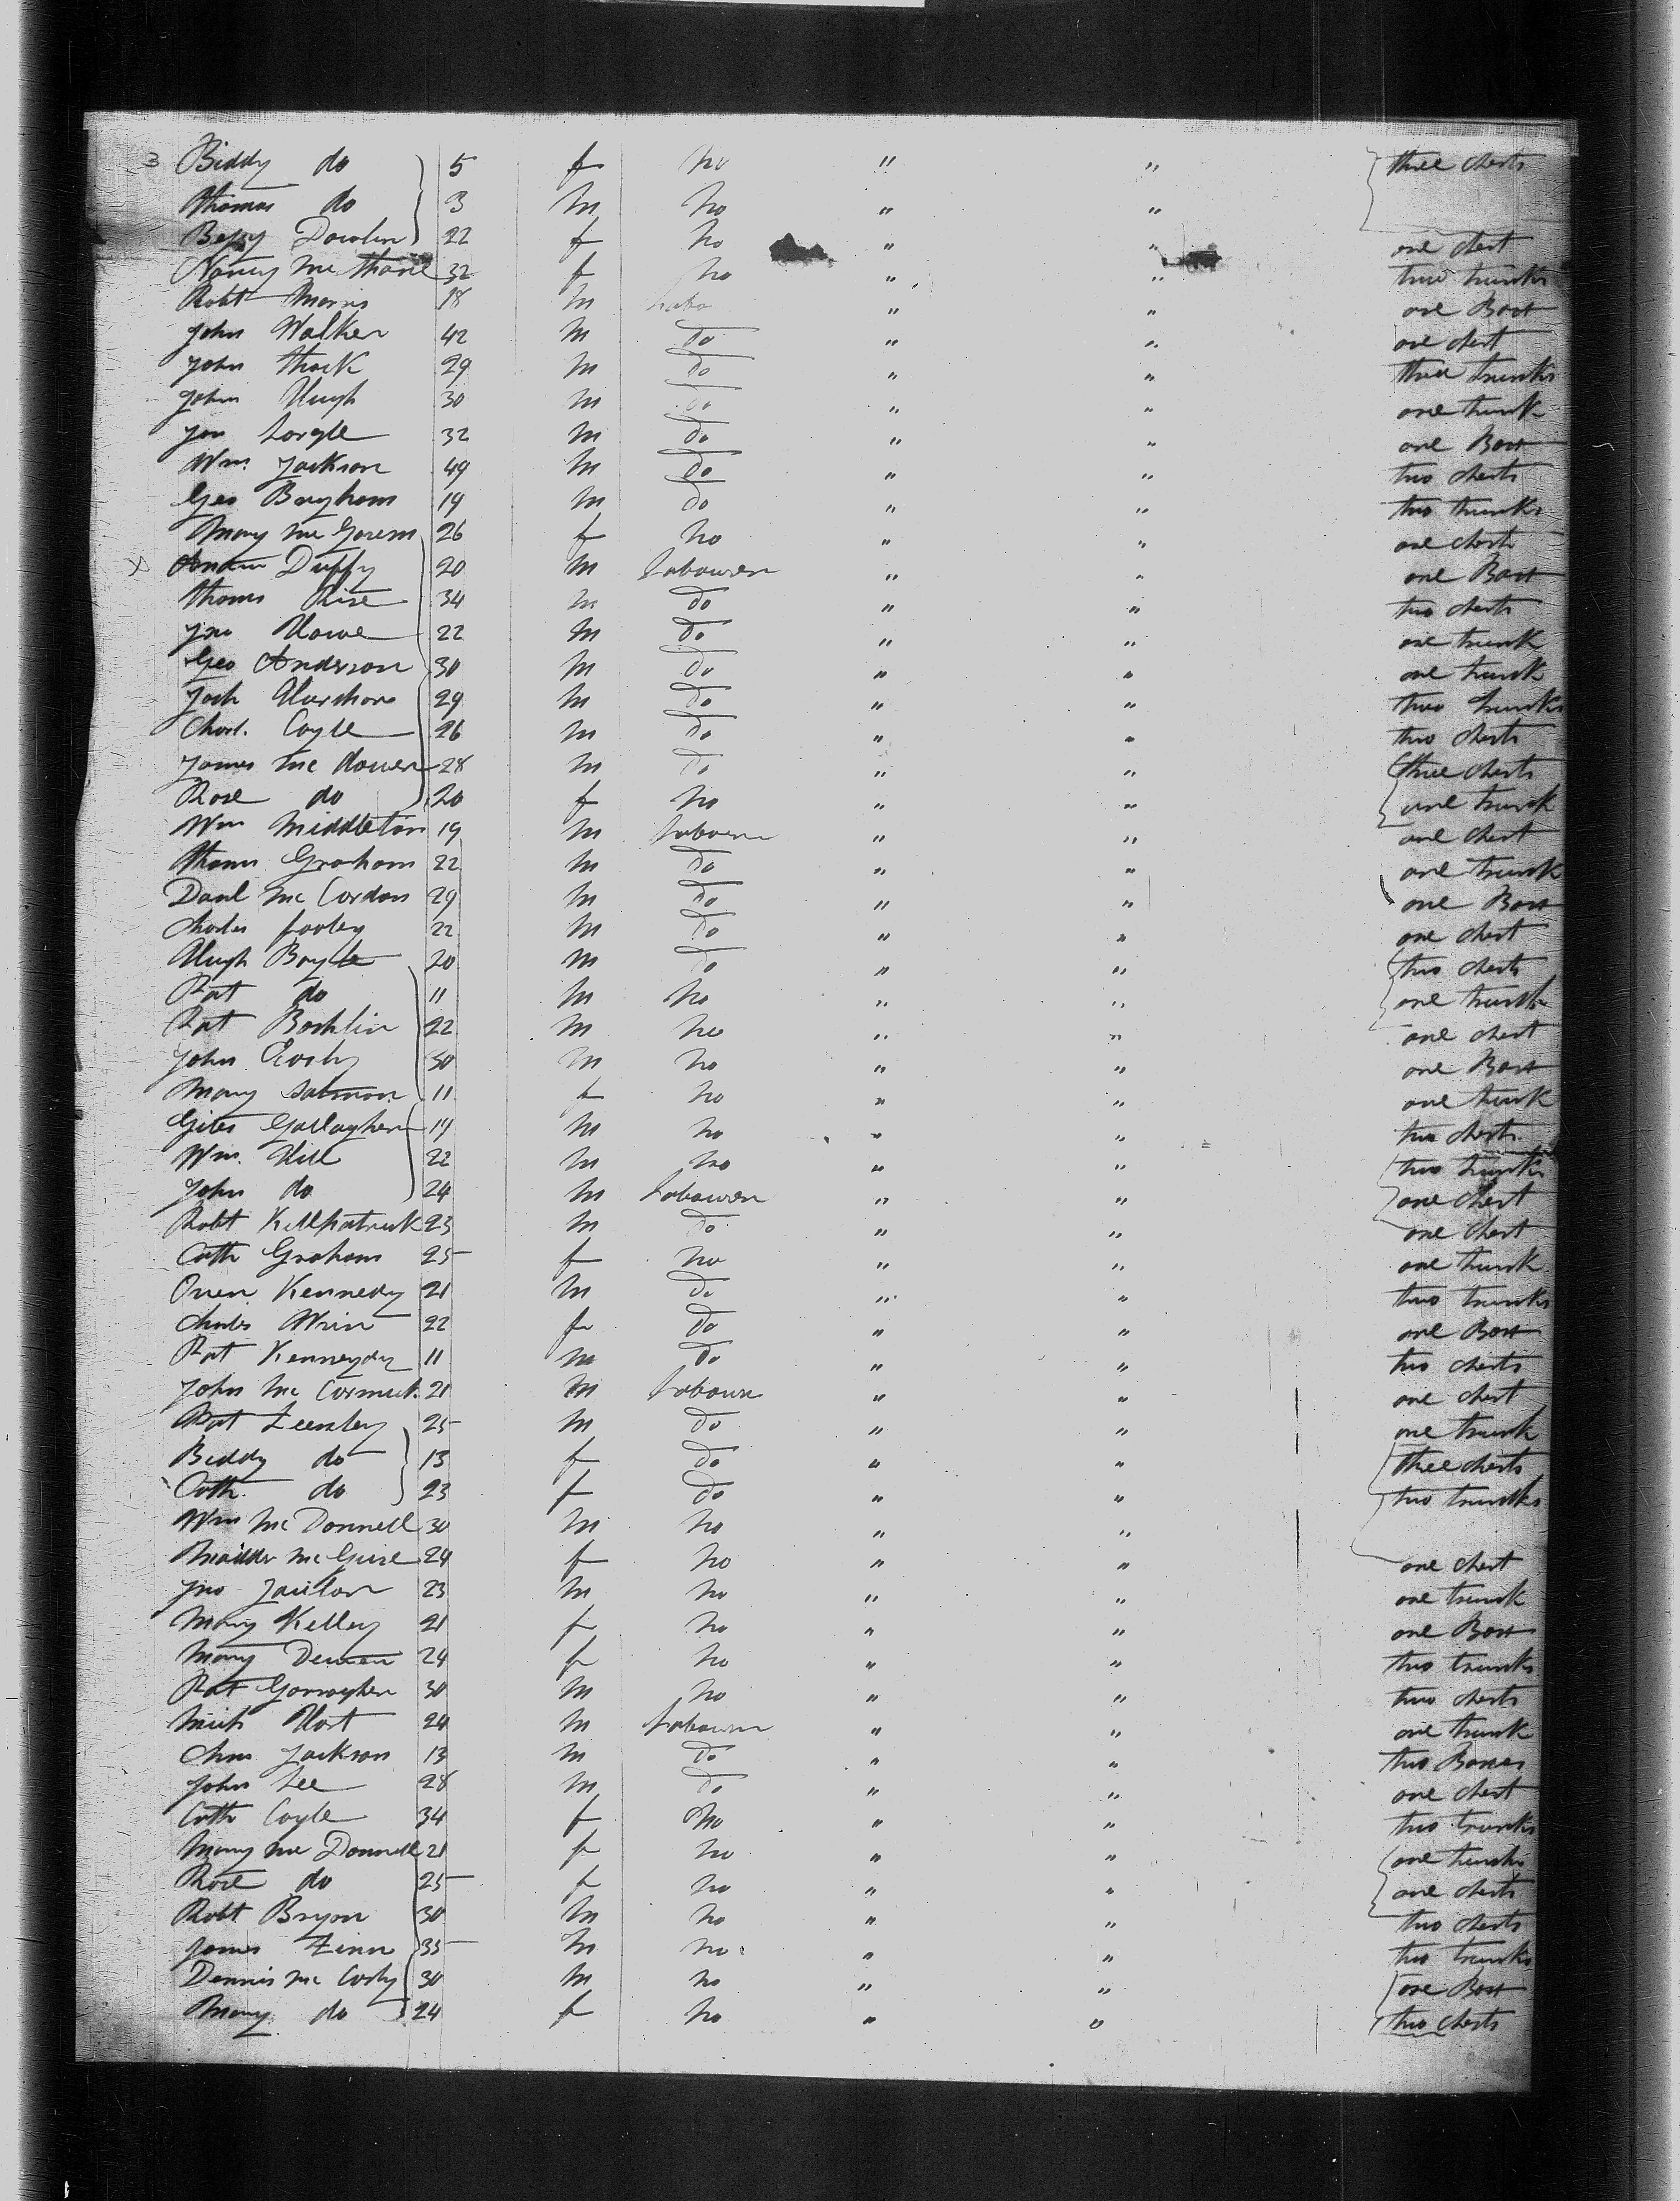 3 Biddy do 5 f no " " three chests
Thomas do 3 m no " "
Betsy Dowlin 22 f no " " one chest
Nancy Mc 32 f no " " two trunks
Robt Morris 18 m Labo " " one Box
John Walker 42 m do " " one chest
John 29 m do " " three trunks
John Hugh 30 m do " " one trunk
Jno 32 m do " " one Box
Wm. Jackson 49 m do " " two chests
Geo Brigham 19 m do " " two trunks
Mary Mc 26 f no " " one chest
x Duffy 20 m Labourer " " one Box
Thoms Rise 34 m do " " two chests
Jno Howe 22 m do " " one trunk
Geo Anderson 30 m do " " one trunk
29 m do " " two trunks
Charl. Coyle 26 m do " " two chests
James Mc 28 m do " " three chests
Rose do 20 f no " " one trunk
Wm Middleton 19 m Labourer " " one chest
Thoms Graham 22 m do " " one trunk
Danl Mc Cordon 29 m do " " one Box
Charles 22 m do " " one chest
Hugh Boyle 20 m do " " two chests
Pat do 11 m no " " one trunk
Pat 22 m no " " one chest
John 30 m no " " one Box
Mary Salmon 11 f no " " one trunk
Giles Gallagher 19 m no " " two chests
Wm. Hill 22 m no " " two trunks
John do 24 m Labourer " " one chest
Robt Killpatrick 23 m do " " one chest
Cath Graham 25 f no " " one trunk
Owen Kennedy 21 m do " " two trunks
Charles 22 f do " " one Box
Pat Kenneydy 11 m do " " two chests
John Mc Cormick 21 m Labour " " one chest
Pat 25 m do " " one trunk
Biddy do 13 f do " " three chests
Cath. do 23 f do " " two trunks
Wm Mc Donnell 30 m no " "
Mc Guire 24 f no " " one chest
Jno 23 m no " " one trunk
Mary Kelley 21 f no " " one Box
Mary 24 f no " " two trunks
Pat 30 m no " " two chests
Mich Hart 24 m Labourer " " one trunk
Jackson 13 m do " " two Boxes
John Lee 28 m do " " one chest
Cath Coyle 34 f no " " two trunks
Mary Mc Donnell 21 f no " " one trunks
Rose do 25 f no " " one chests
Robt Bryan 30 m no " " two chests
James 35 m no " " two trunks
Dennis Mc 30 m no " " one Box
Mary do 24 f no " " two chests